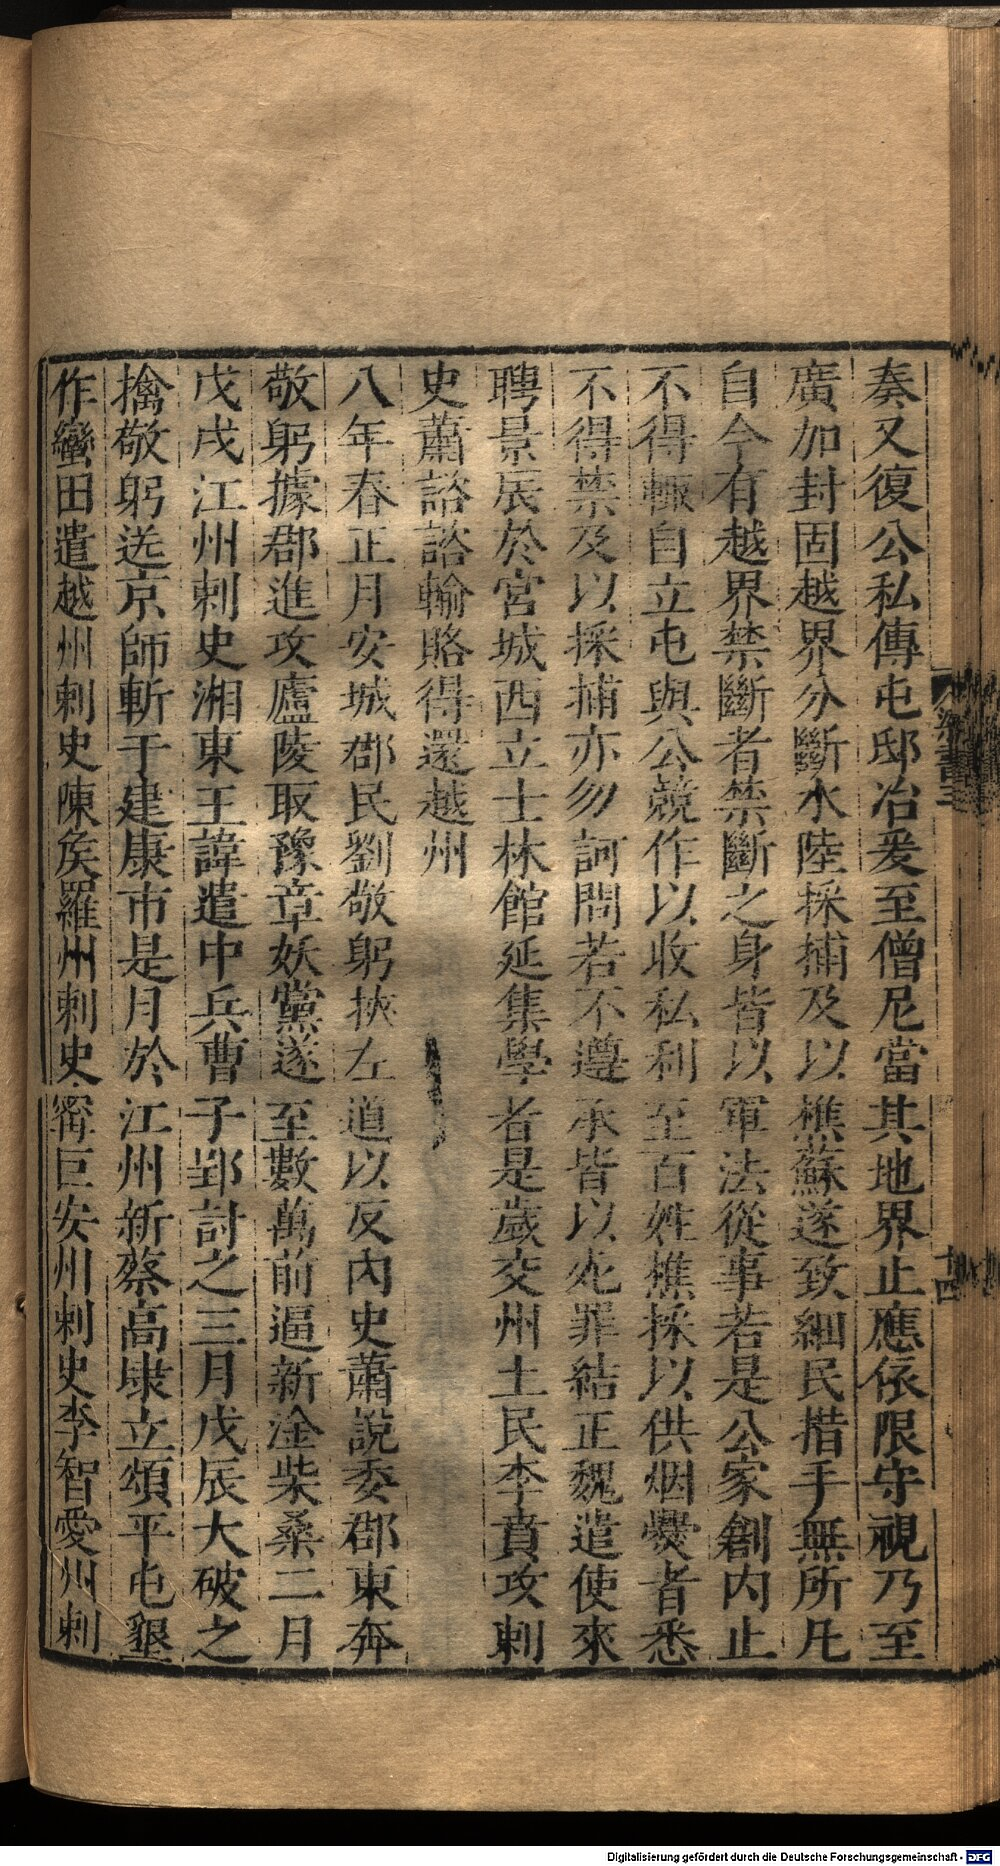 奏又復公私傳屯邸冶爰至僧尼當其地界止應依限守視乃至
廣加封固越界分斷水陸採捕及以樵蘇遂致細民措手無所凡
自今有越界禁斷者禁斷之身皆以軍法從事若是公家創內止
不得輙自立屯與公競作以收私利至百姓樵採以供烟爨者悉
不得禁及以採捕亦勿訶問若不遵承皆以死罪結正魏遣使來
聘景辰於宮城西立士林館延集學者是歲交州土民李賁攻刺
史蕭諮諮輸賂得還越州
八年春正月安城郡民劉敬躬挾左道以反內史蕭說委郡東奔
敬躬據郡進攻廬陵取豫章妖黨遂至數萬前逼新淦柴桑二月
戊戌江州刺史湘東王諱遣中兵曹子郢討之三月戊辰大破之
擒敬躬送京師斬于建康市是月於江州新蔡高埭立頌平屯墾
作蠻田遣越州刺史陳矦羅州刺史甯巨安州刺史李智愛州刺
梁書三
十四
Digitalisierung gefördert durch die Deutsche Forschungsgemeinschaft - DFG